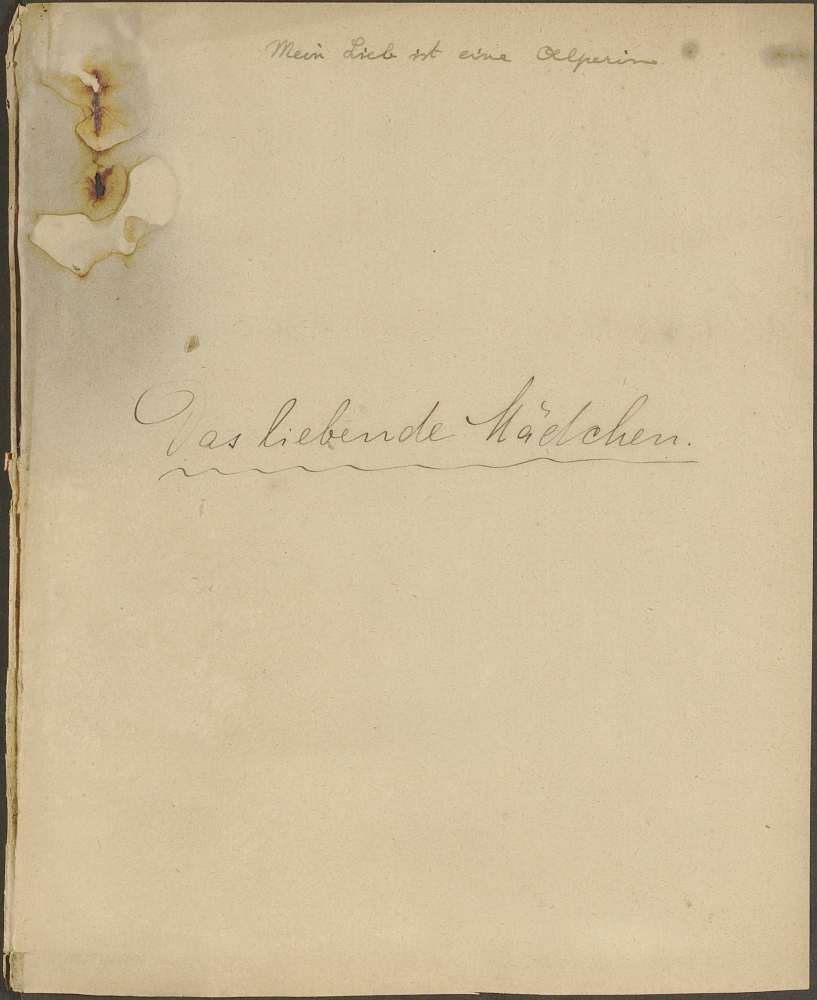 Mein Lieb ist eine Aelperin
Das liebende Mädchen.